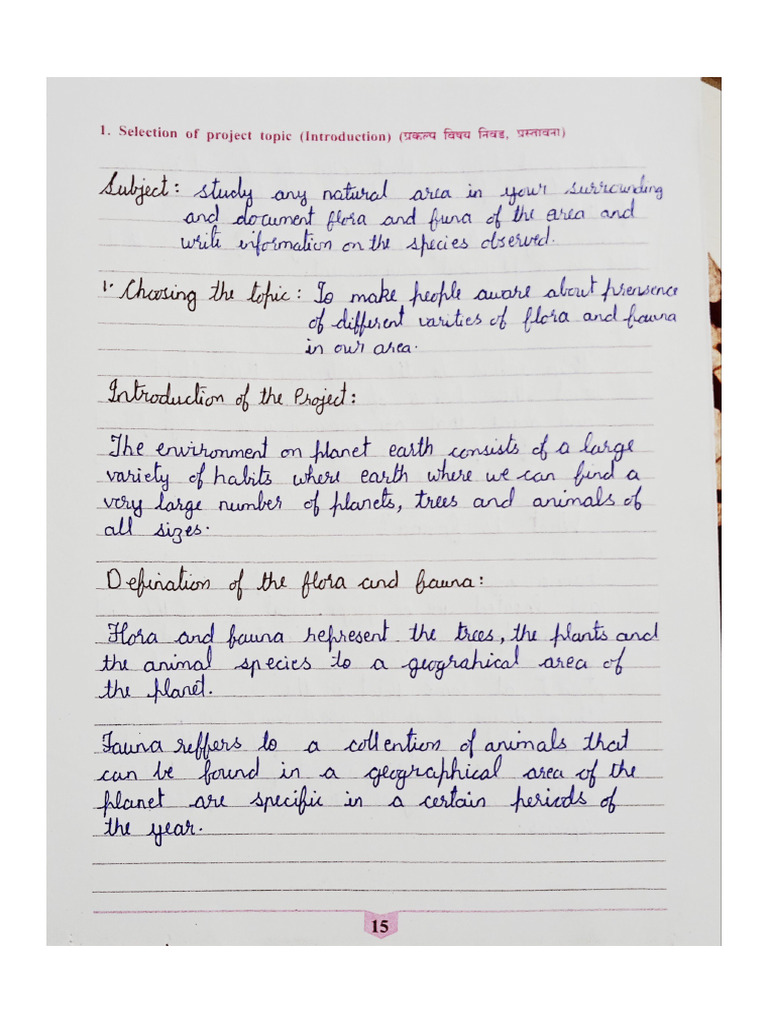 1. Selection of project topic (Introduction) (प्रकल्प विषय निवड, प्रस्तावना)
Subject: study any natural area in your surrounding
and document flora and funa of the area and
write information on the species observed.
1. Choosing the topic: To make people aware about prensence
of different varities of flora and fauna
in our area.
Introduction of the Project:
The environment on planet earth consists of a large
variety of habits where earth where we can find a
very large number of planets, trees and animals of
all sizes.
Defination of the flora and fauna:
Flora and fauna represent the trees, the plants and
the animal species to a geograhical area of
the planet.
Fauna reffers to a collention of animals that
can be found in a geographical area of the
planet are specific in a certain periods of
the year.
15